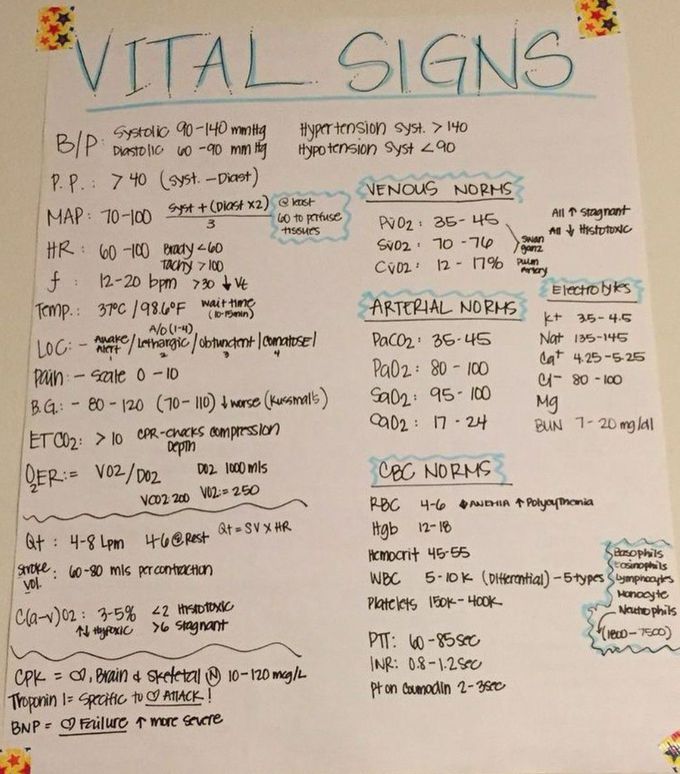 VITAL SIGNS
B/P: Systolic 90-140 mmHg Hypertension Syst. > 140
Diastolic 60-90 mmHg Hypotension Syst < 90
P.P.: > 40 (Syst. - Diast)
MAP: 70-100 Syst + (Diast x 2) / 3
@ least 60 to perfuse tissues
HR: 60-100 Brady < 60
Tachy > 100
f: 12-20 bpm > 30 ↓ Vt
Temp.: 37°C / 98.6°F wait time (10-15min)
LOC: - Awake Alert / Lethargic / obtundent / comatose /
A/O (1-4)
1 2 3 4
Pain: - Scale 0-10
B.G.: - 80-120 (70-110) ↓ worse (Kussmal's)
ETCO2: > 10 CPR-checks compression Depth
O2ER: = VO2/DO2 DO2 1000 mls
VCO2 200 VO2: = 250
Qt: 4-8 Lpm 4-6 @ Rest Qt = SV X HR
Stroke Vol.: 60-80 mls per contraction
C(a-v)O2: 3-5% < 2 Histotoxic
↑↓ Hypoxic > 6 Stagnant
CPK = ♡, Brain & Skeletal (N) 10-120 mcg/L
Troponin I = Specific to ♡ ATTACK!
BNP = ♡ Failure ↑ more severe
VENOUS NORMS
PvO2: 35-45
SvO2: 70-76
CvO2: 12-17%
swan ganz
Pulm Artery
All ↑ Stagnant
All ↓ Histotoxic
ARTERIAL NORMS
PaCO2: 35-45
PaO2: 80-100
SaO2: 95-100
CaO2: 17-24
Electrolytes
K+ 3.5-4.5
Na+ 135-145
Ca+ 4.25-5.25
Cl- 80-100
Mg
BUN 7-20 mg/dl
CBC NORMS
RBC 4-6 ↓ ANEMIA ↑ Polycythemia
Hgb 12-18
Hemocrit 45-55
WBC 5-10K (Differential) - 5 types
Platelets 150K-400K
Basophils
Eosinophils
Lymphocytes
Monocyte
Neutrophils
(1800-7500)
PTT: 60-85 sec
INR: 0.8-1.2 sec
Pt on Coumadin 2-3 sec